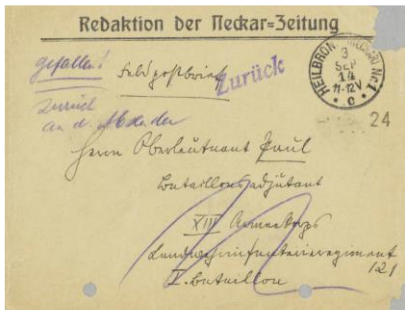 Redaktion der Neckar-Zeitung
gefallen!
Feldpostbrief
Zurück
HEILBRONN (NECKAR) Nr. 1
3
SEP
14
11-12V
* c *
zurück
an d. Absender
24
Herrn Oberleutnant Paul
Bataillonsadjutant
XIII Armeekorps
Landwehrinfanterieregiment
121
I. Bataillon